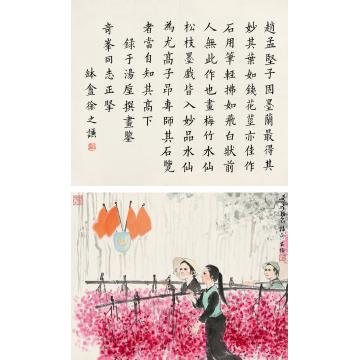 趙孟堅子固墨蘭最得其
妙其葉如鐵花莖亦佳作
石用筆輕拂如飛白狀前
人無此作也畫梅竹水仙
松枝墨戲皆入妙品水仙
為尤高子昂專師其石覽
者當自知其高下
錄于湯垕撰畫鑒
奇峯同志正擘
缽盦徐之謙